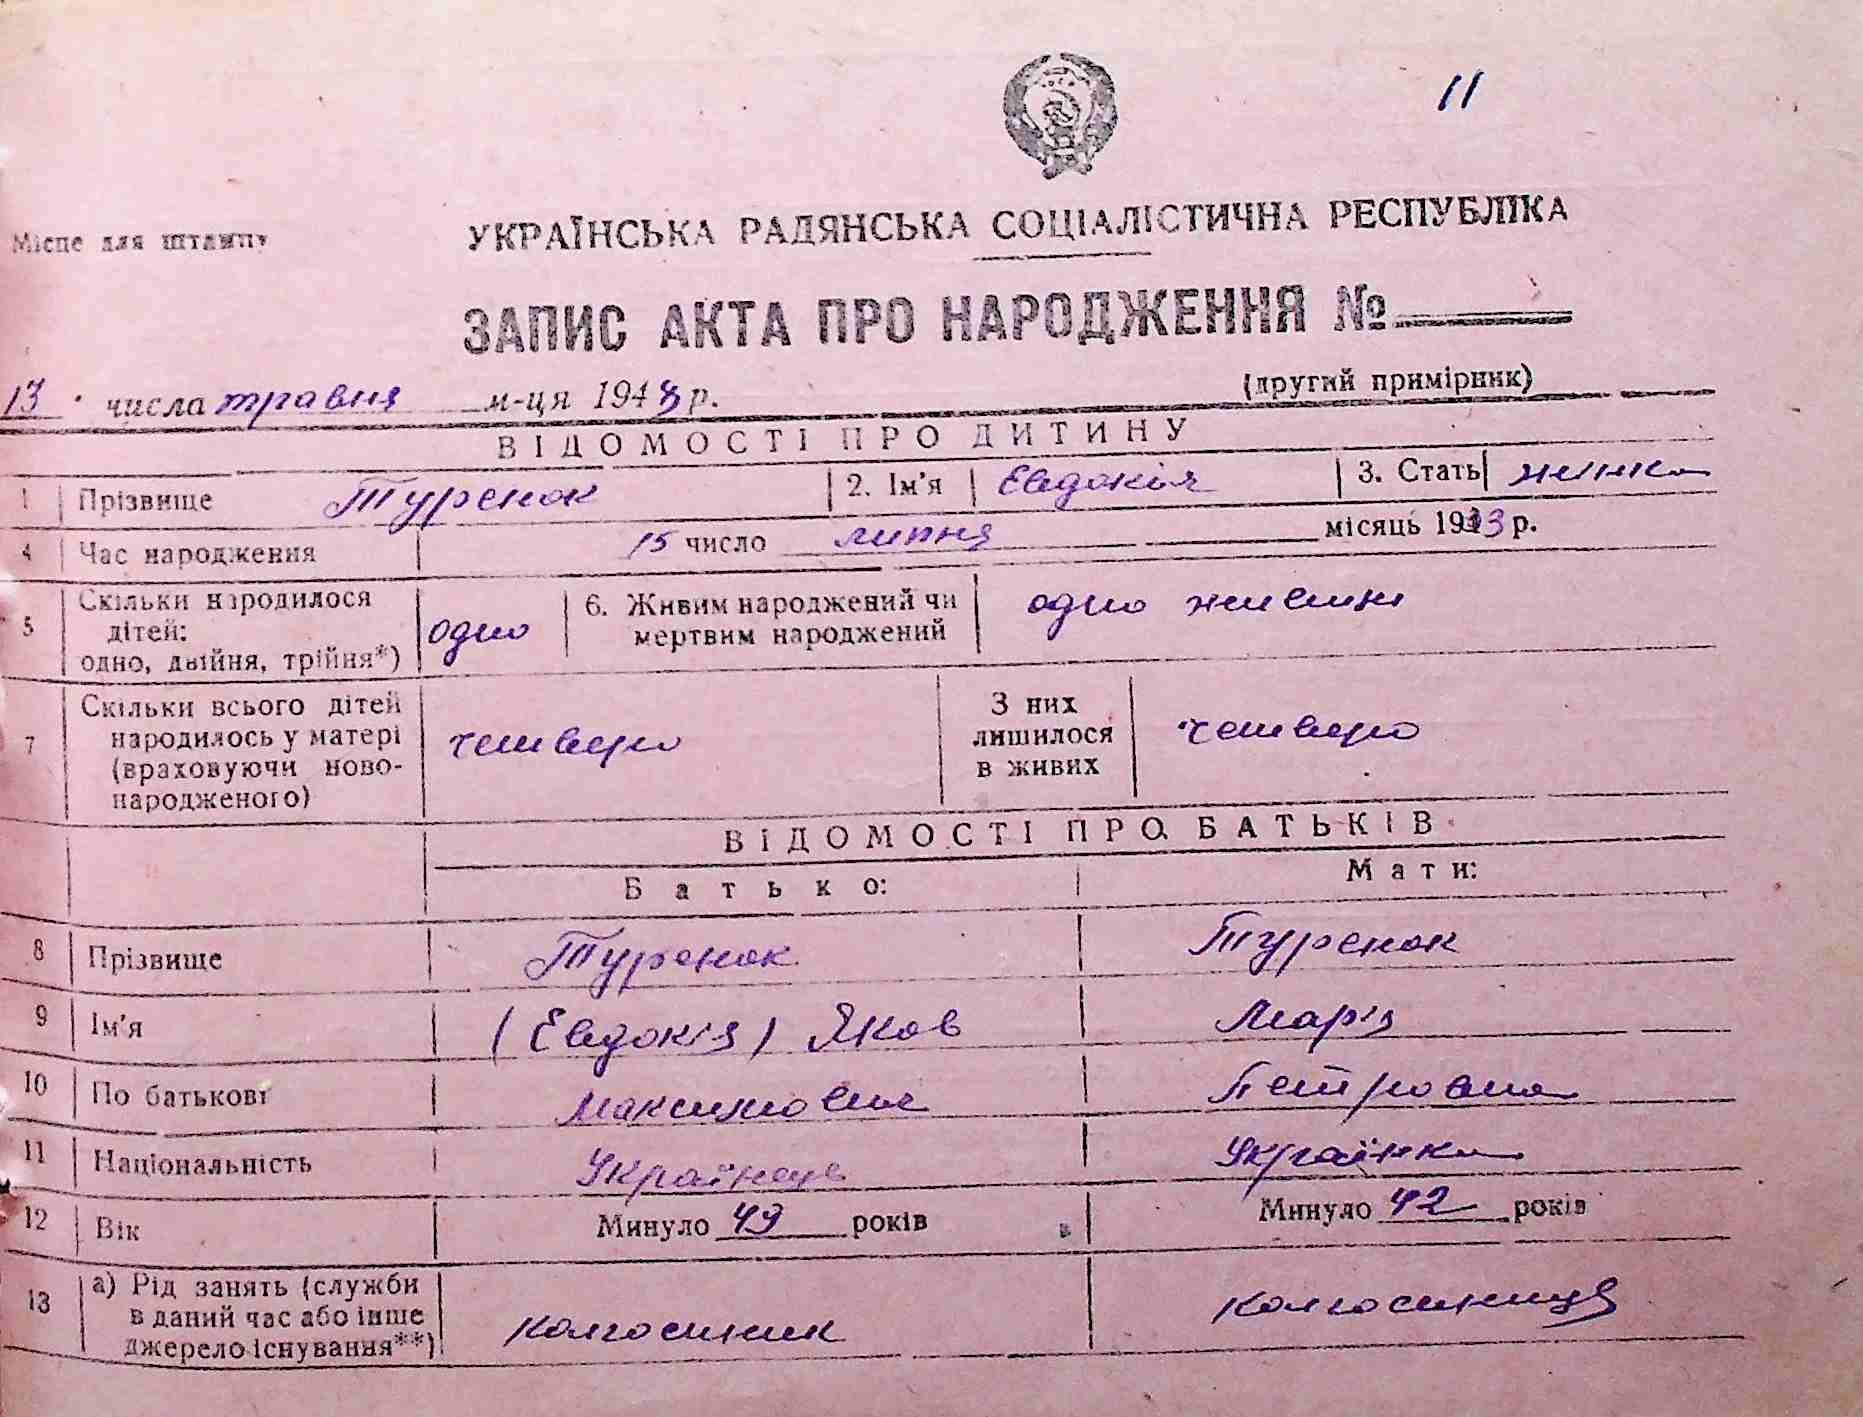 11
Місце для штампу
УКРАЇНСЬКА РАДЯНСЬКА СОЦІАЛІСТИЧНА РЕСПУБЛІКА
ЗАПИС АКТА ПРО НАРОДЖЕННЯ №
13 числа травня м-ця 1948 р. (другий примірник)
ВІДОМОСТІ ПРО ДИТИНУ
1 Прізвище Туренок 2. Ім'я Евдокія 3. Стать жінка
4 Час народження 15 число липня місяць 1933 р.
5 Скільки народилося дітей: одно, двійня, трійня*) одно 6. Живим народжений чи мертвим народжений одно живим
7 Скільки всього дітей народилось у матері (враховуючи новонародженого) четверо З них лишилося в живих четверо
ВІДОМОСТІ ПРО БАТЬКІВ
Батько: Мати:
8 Прізвище Туренок Туренок
9 Ім'я (Евдокія) Яков Марія
10 По батькові Максимович Петровна
11 Національність Українець Українка
12 Вік Минуло 49 років Минуло 42 років
13 а) Рід занять (служби в даний час або інше джерело існування**) колгоспник колгоспниця